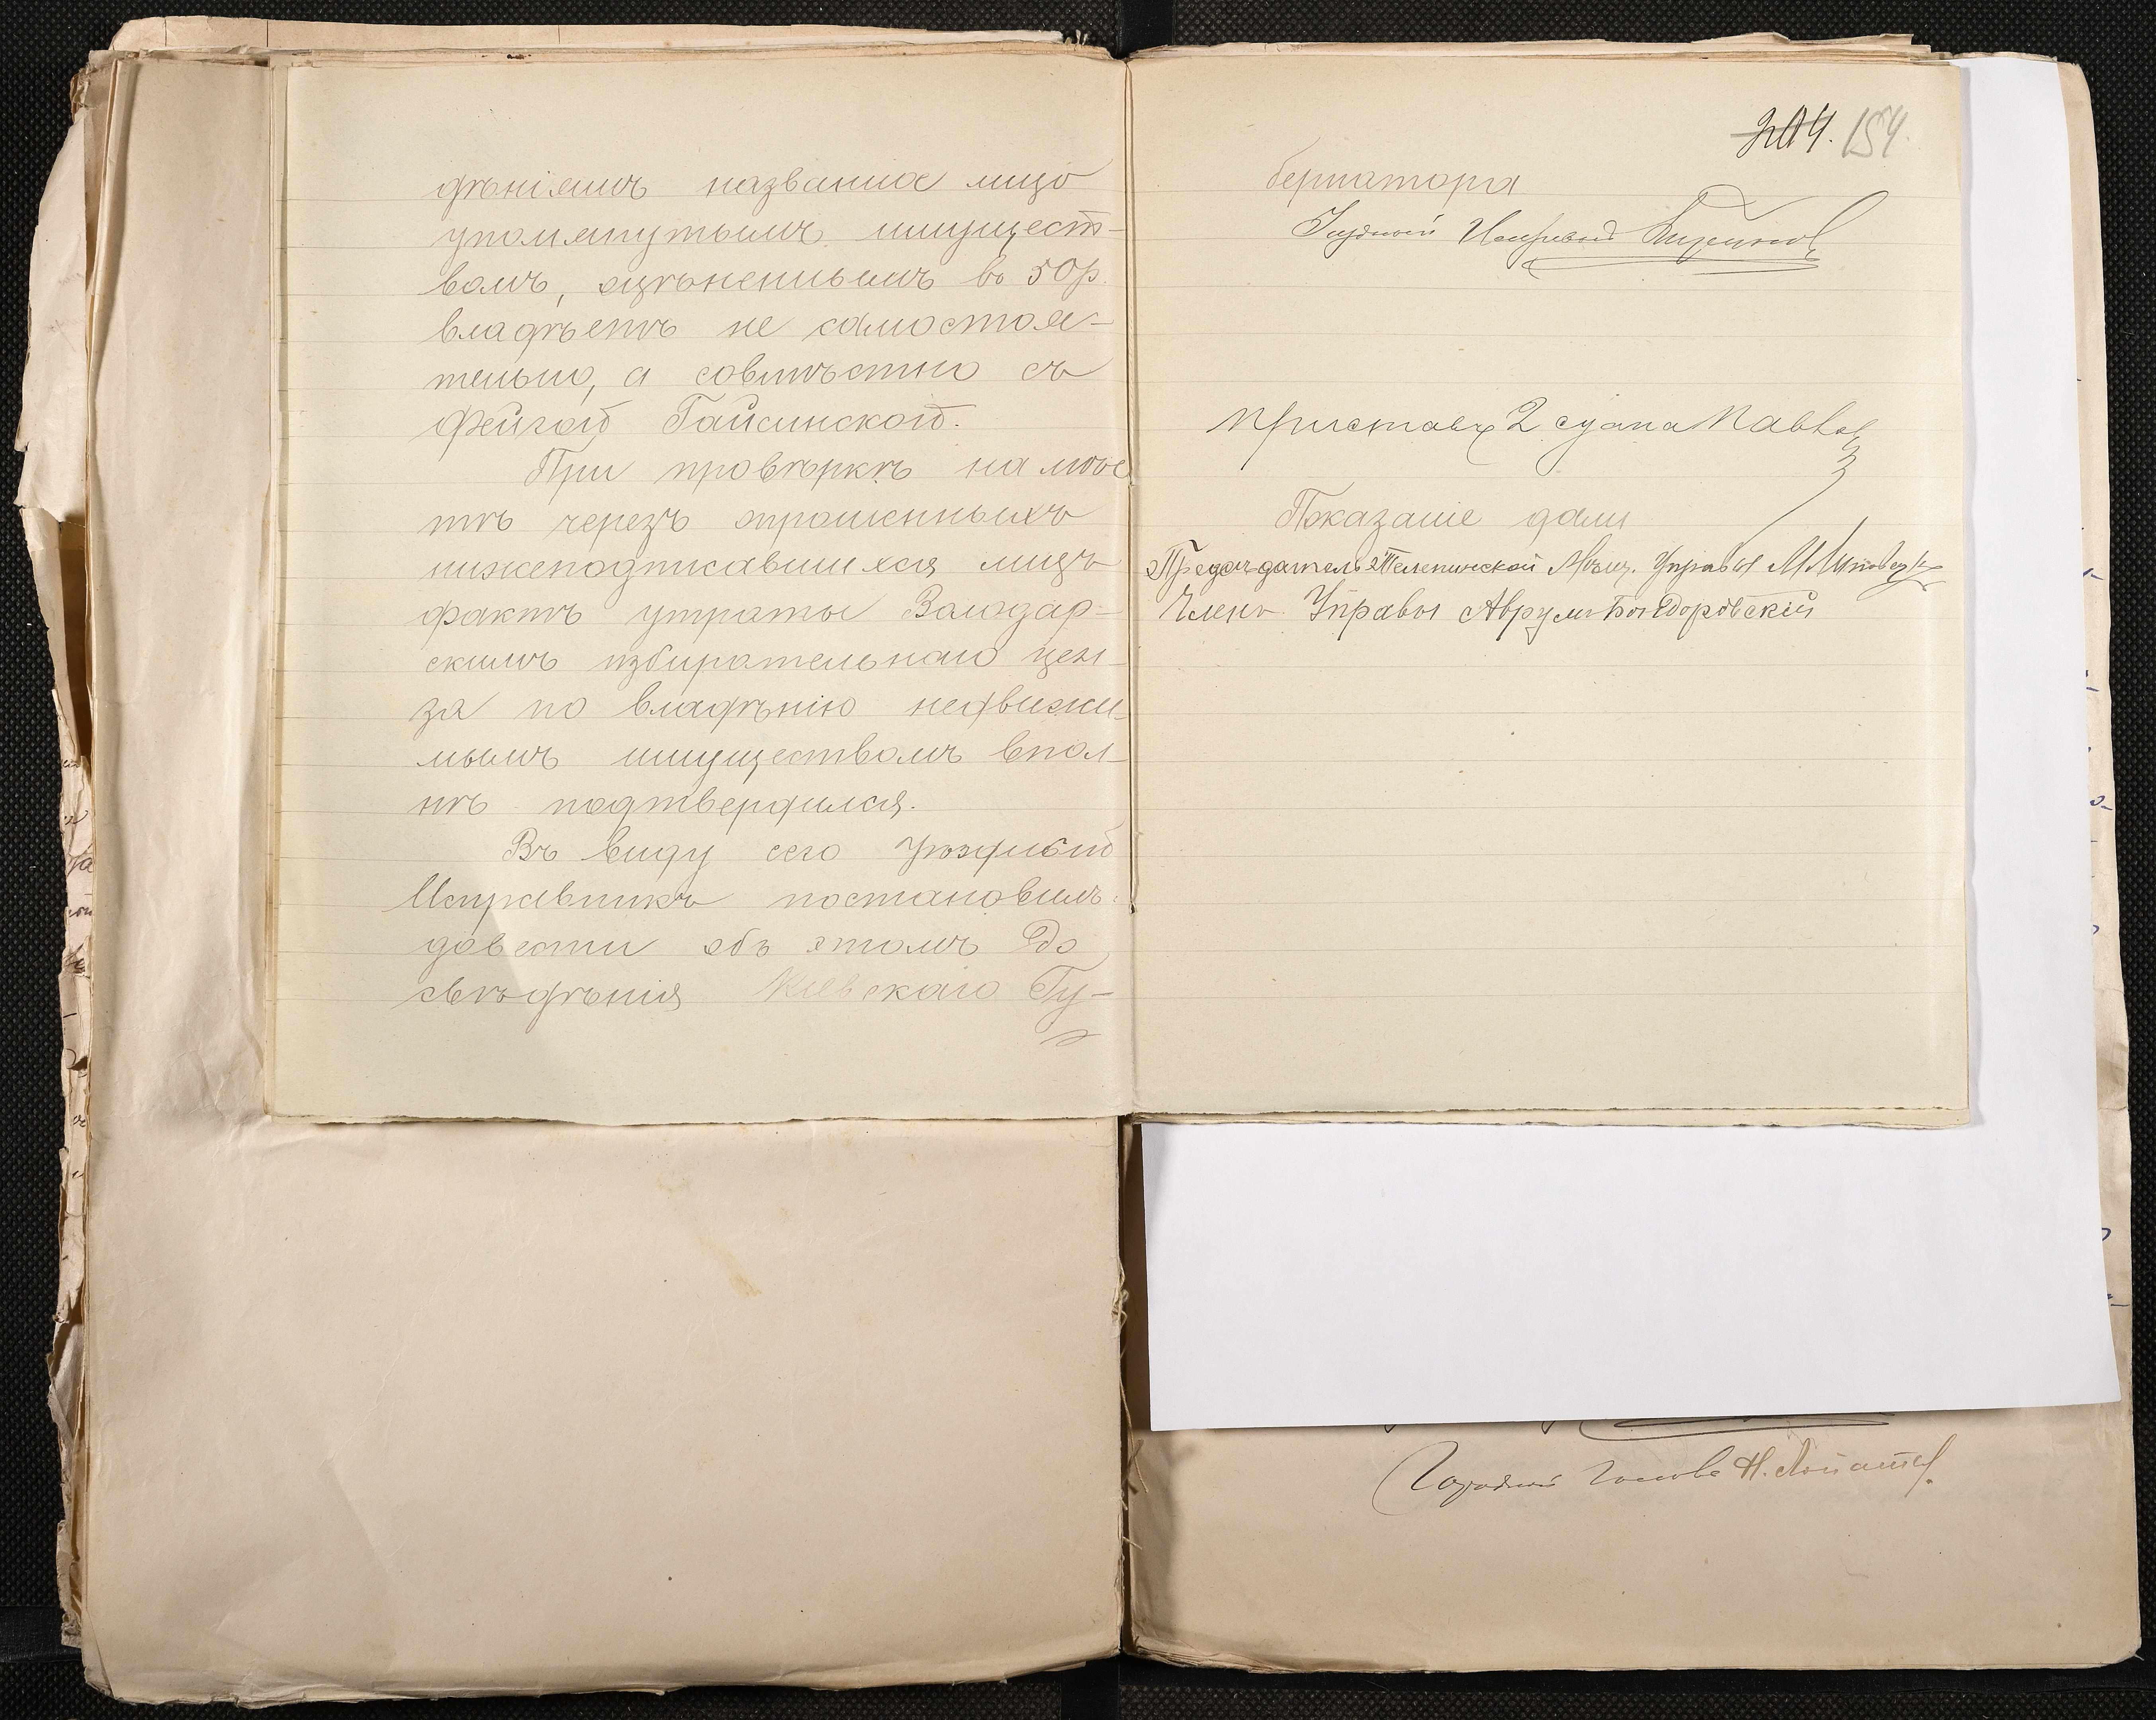 дѣніямъ названное лицо
упомянутымъ имущест-
вомъ, оцѣненнымъ въ 50 р.
владѣетъ не самостоя-
тельно, а совмѣстно съ
Фейгой Гайсинской.
При провѣркѣ на мѣс
тѣ черезъ опрошенныхъ
нижеподписавшихся лицъ
фактъ утраты Володар-
скимъ избирательнаго цен-
за по владѣнію недвижи-
мымъ имуществомъ впол-
нѣ подтвердился.
Въ виду сего Уѣздный
Исправникъ постановилъ:
довести объ этомъ до
свѣдѣнія Кіевскаго Гу-
204. 154.
бернатора
Уѣздный Исправникъ
Приставъ 2 стана
Показаніе дали
Предсѣдатель Телепинской Мѣщ. Управы
Членъ Управы Аврумъ
Городской Голова Н.